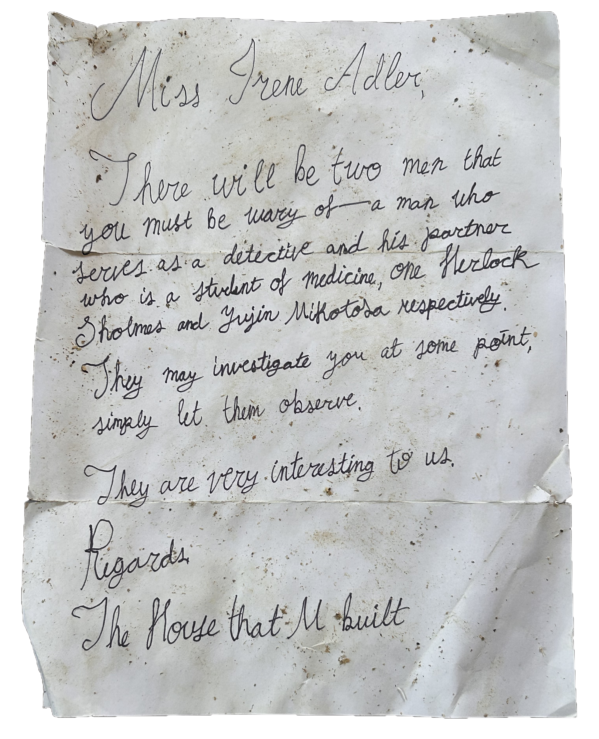 Miss Irene Adler,
There will be two men that
you must be wary of—a man who
serves as a detective and his partner
who is a student of medicine, one Herlock
Sholmes and Yujin Mikotoba respectively.
They may investigate you at some point,
simply let them observe.
They are very interesting to us.
Regards,
The House that M built